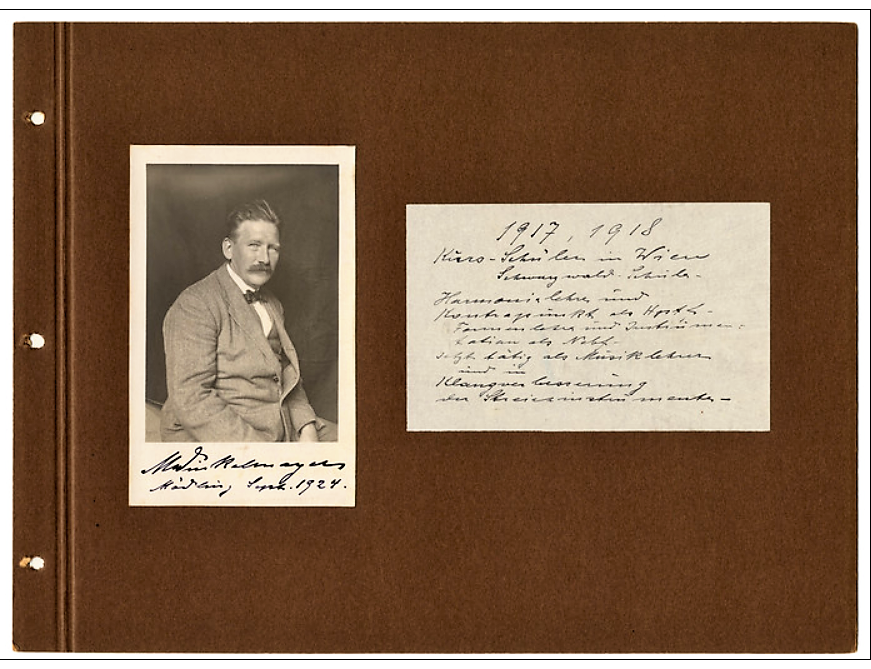 M Winkelmayer
Mödling Sept. 1924.
1917, 1918
Kurs-Schüler in Wien
Schwarzwald-Schule-
Harmonielehre und
Kontrapunkt als
Formenlehre und Instrumen-
tation als
Jetzt tätig als Musiklehrer
und in
Klangverbesserung
der Streichinstrumente-